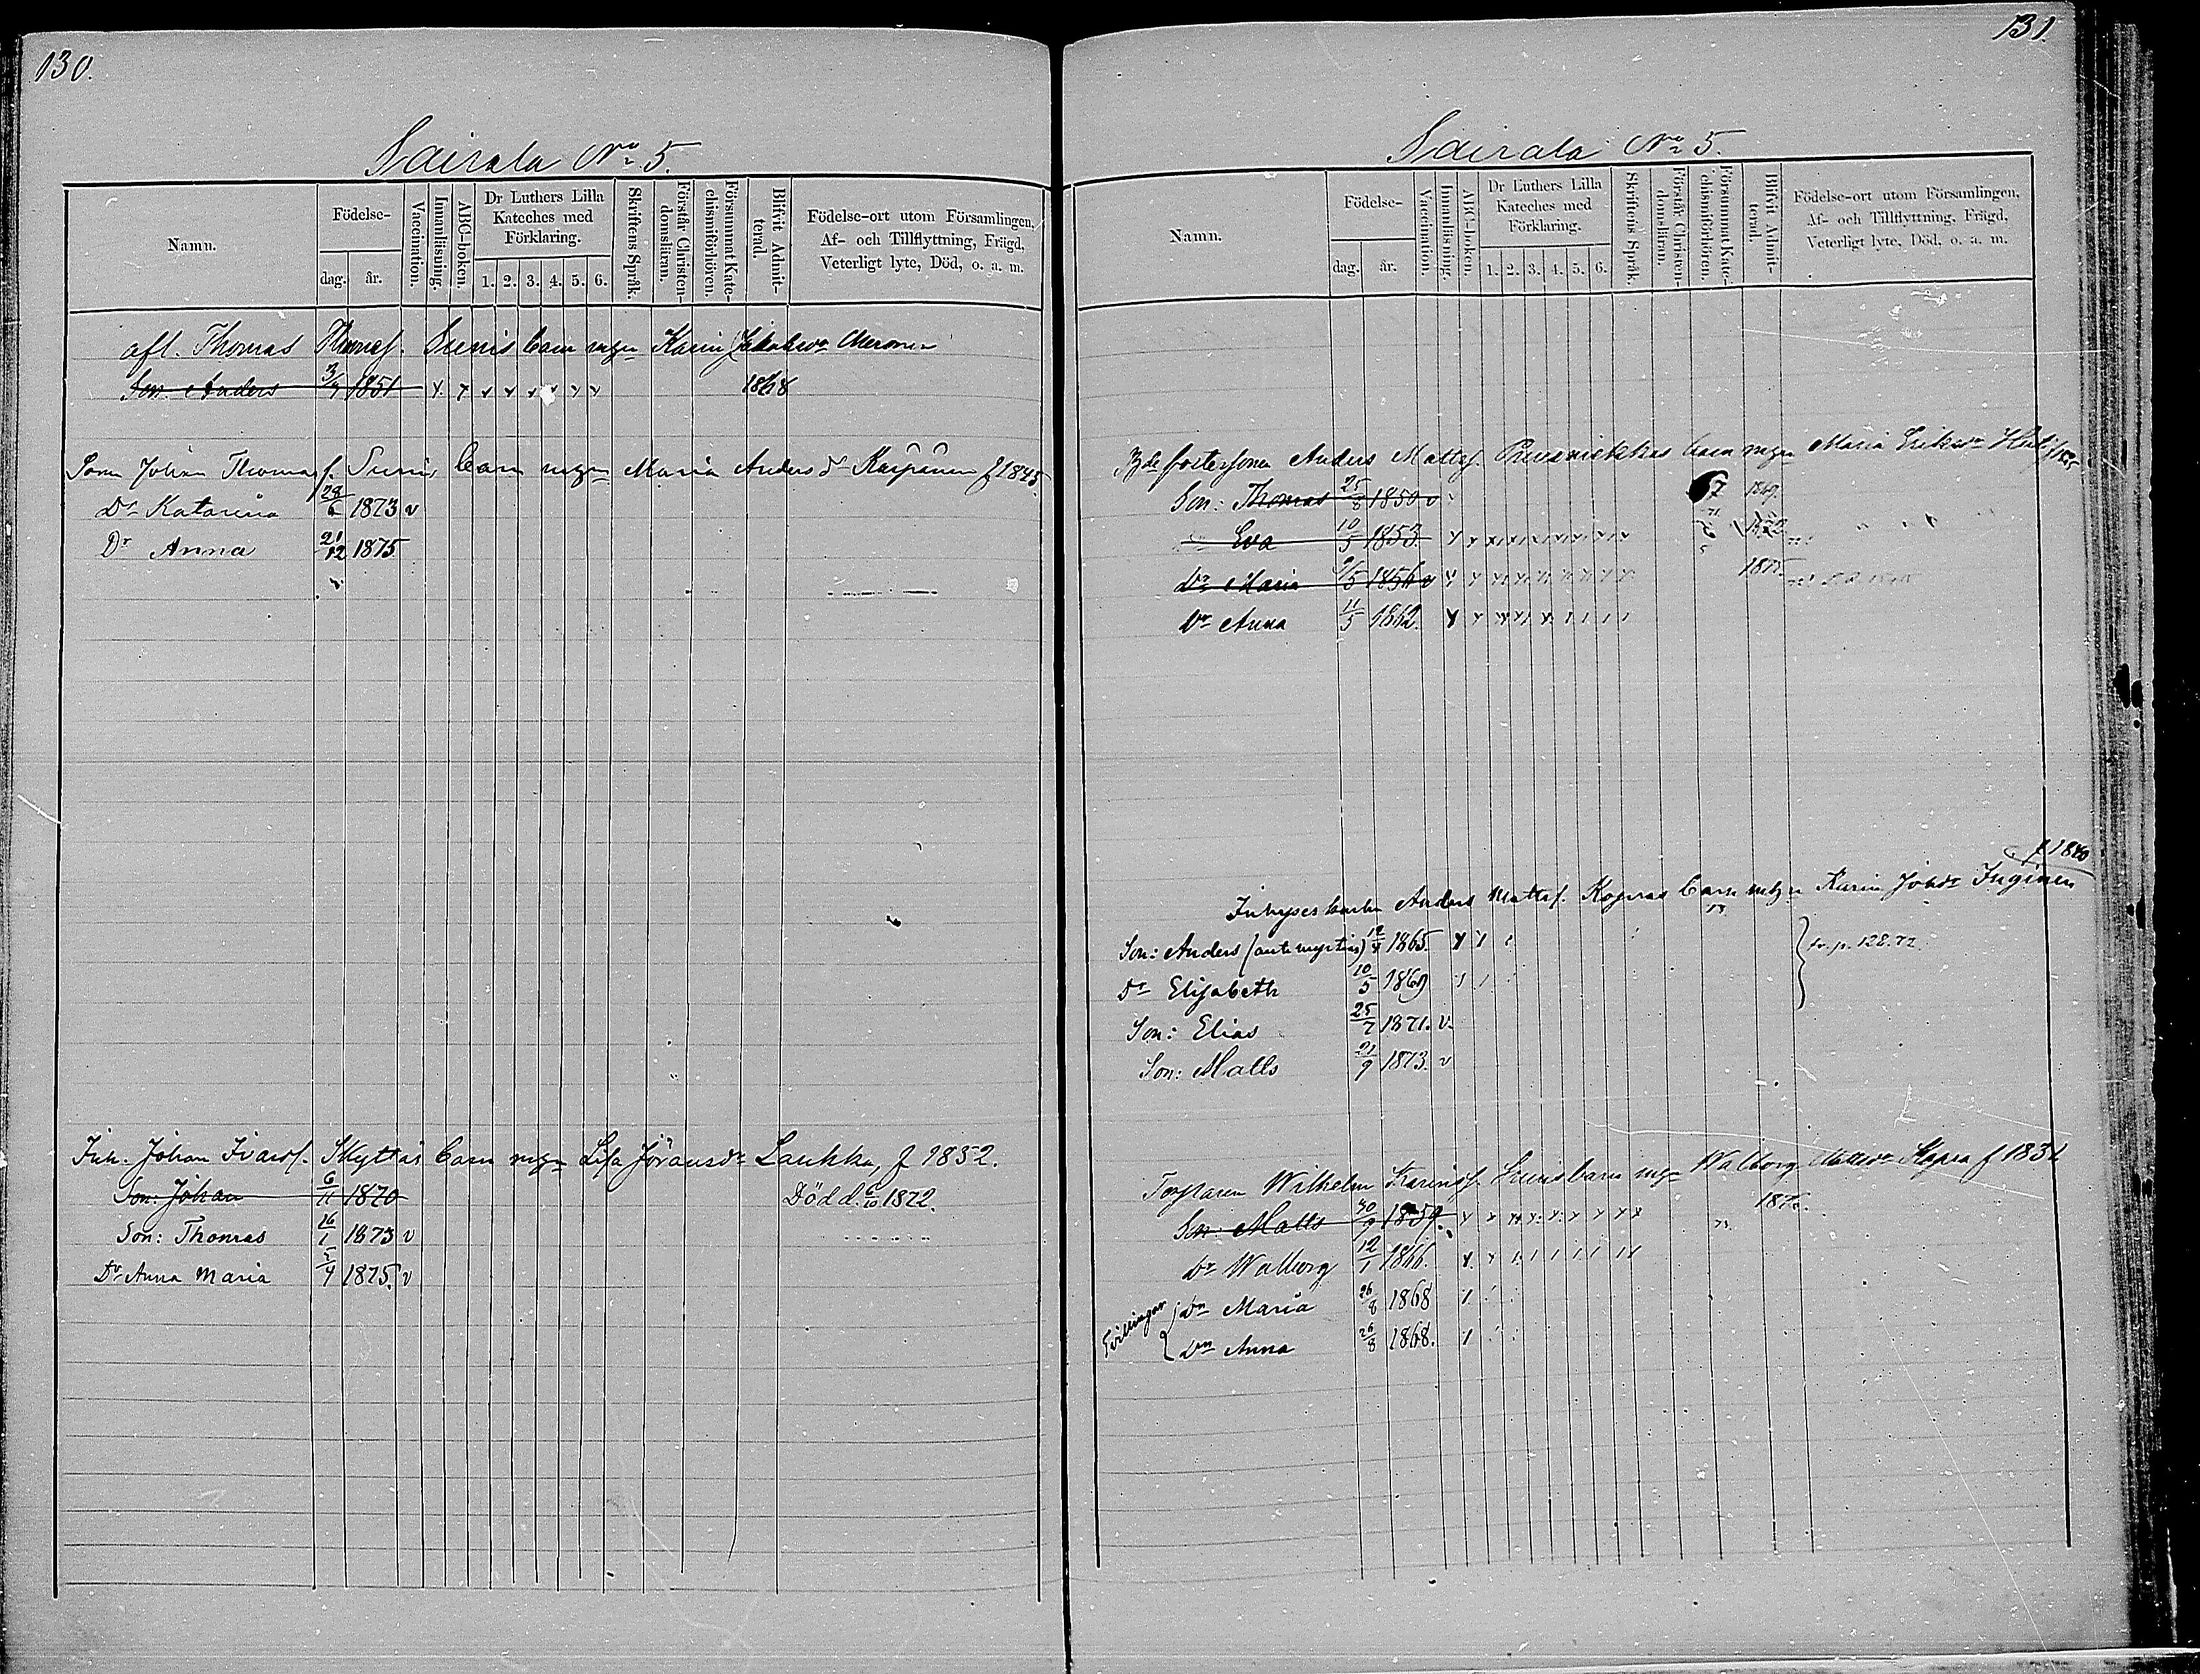 130.
Sairala No 5.
Namn.
Födelse-
dag.
år.
Vaccination.
Innanläsning.
ABC-boken.
Dr Luthers Lilla
Kateches med
Förklaring.
1. 2. 3. 4. 5. 6.
Skriftens Språk.
Förstår Christen-
domsläran.
Försummat Kate-
chismiförhören.
Blifvit Admit-
terad.
Födelse-ort utom Församlingen,
Af- och Tillflyttning, Frägd,
Veterligt lyte, Död, o. a. m.
afl. Thomas Thomass. Sunis barn m. Karin Jakobsdr
Son Anders 3/7 1851 1868
Sonen Johan Thomass. Sunis barn m. Maria Andersdr f 1845
Dr Katarina 28/6 1873 v
Dr Anna 21/12 1875
Inh. Johan Ivarss. Skyttäs barn m. Lisa Jöransdr Laukka, f 1852.
Son: Johan 6/11 1870 Död d. 6/10 1872.
Son: Thomas 16/1 1873 v
Dr Anna Maria 5/4 1875. v
131.
Sairala No 5.
Namn.
Födelse-
dag.
år.
Vaccination.
Innanläsning.
ABC-boken.
Dr Luthers Lilla
Kateches med
Förklaring.
1. 2. 3. 4. 5. 6.
Skriftens Språk.
Förstår Christen-
domsläran.
Försummat Kate-
chismiförhören.
Blifvit Admit-
terad.
Födelse-ort utom Församlingen,
Af- och Tillflyttning, Frägd,
Veterligt lyte, Död, o. a. m.
fostersonen Anders Mattss. barn m. Maria Eriksdr
Son: Thomas 25/8 1850 v 1869.
Eva 10/5 1853.
Dr Maria 9/5 1856 v 1875.
Dr Anna 11/5 1862.
f 1840
Anders Mattss. Kopras barn m. Karin Johdr Inginen
Son: Anders 1865. fr. p. 128. 72.
Dr Elisabeth 10/5 1869
Son: Elias 25/7 1871. v.
Son: Matts 21/9 1873. v
Torparen Wilhelm Sunis barn m. Walborg Kopra f 1831
Son Matts 30/9 1859. 1876.
Dr Walborg 12/1 1866.
Tvillingar
Dr Maria 26/8 1868
Dr Anna 26/8 1868.